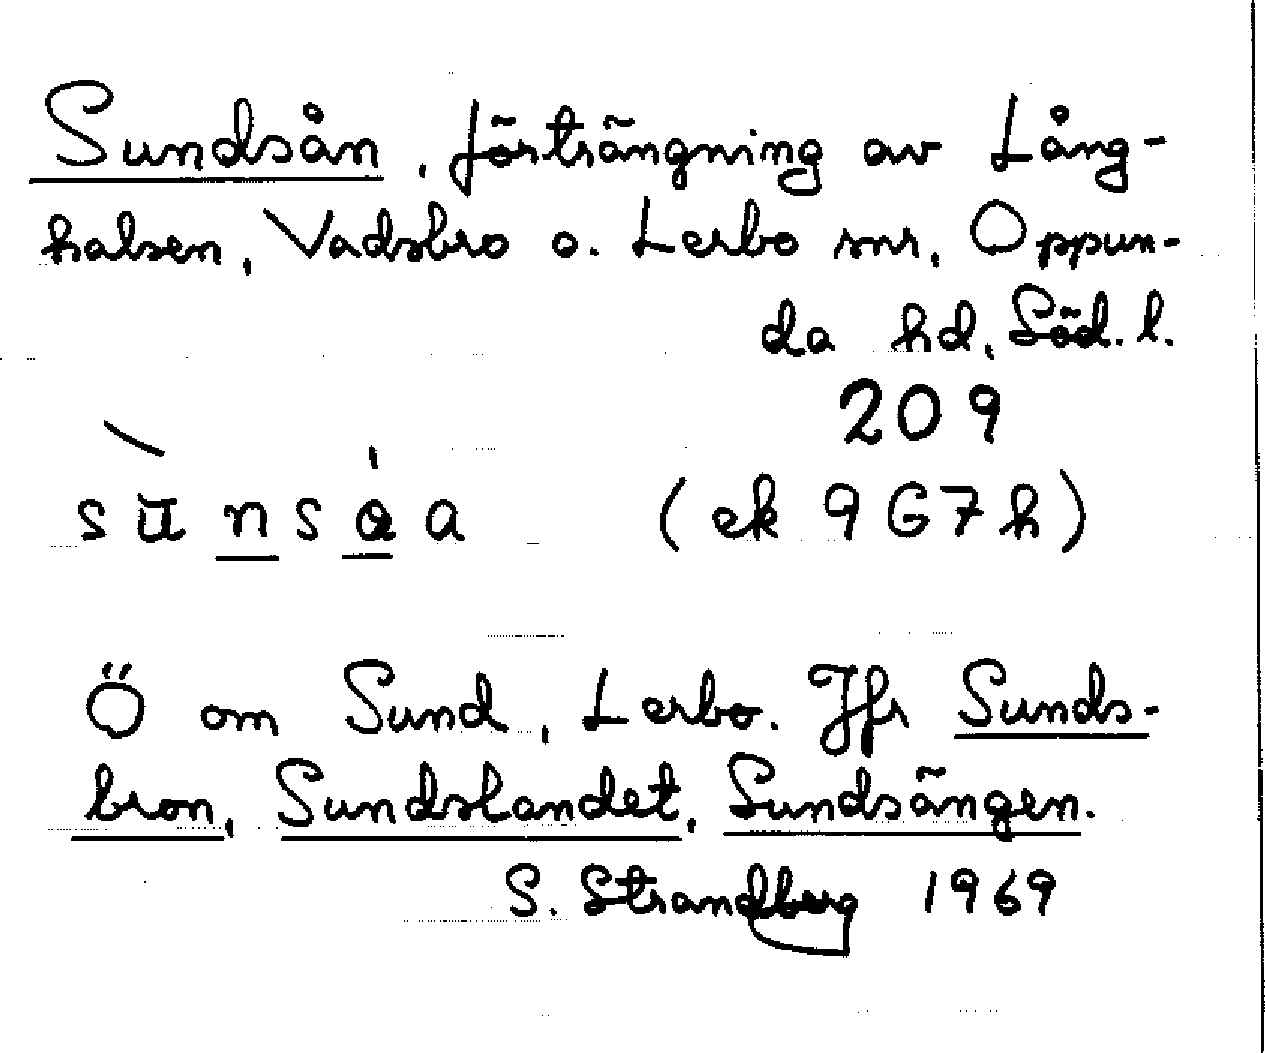 Sundsån, förträngning av Lång-
halsen, Vadsbro o. Lerbo snr, Oppun-
da hd, Söd. l.
209
sūnsåa (ek 9G7h)
Ö om Sund, Lerbo. Jfr Sunds-
bron, Sundslandet, Sundsängen.
S. Strandberg 1969